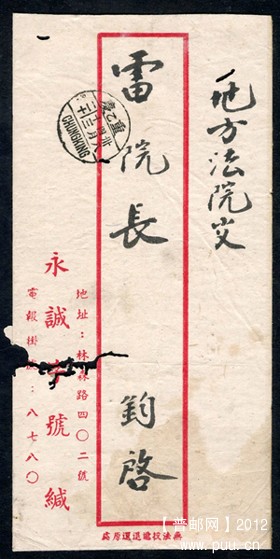 地方法院交
雷院長 鈞啓
地址：林森路四〇二號
永誠 號緘
電報掛 ：八七八〇
無法投遞退還原處
CHUNGKING
【普邮网】2012
www.puu.cn